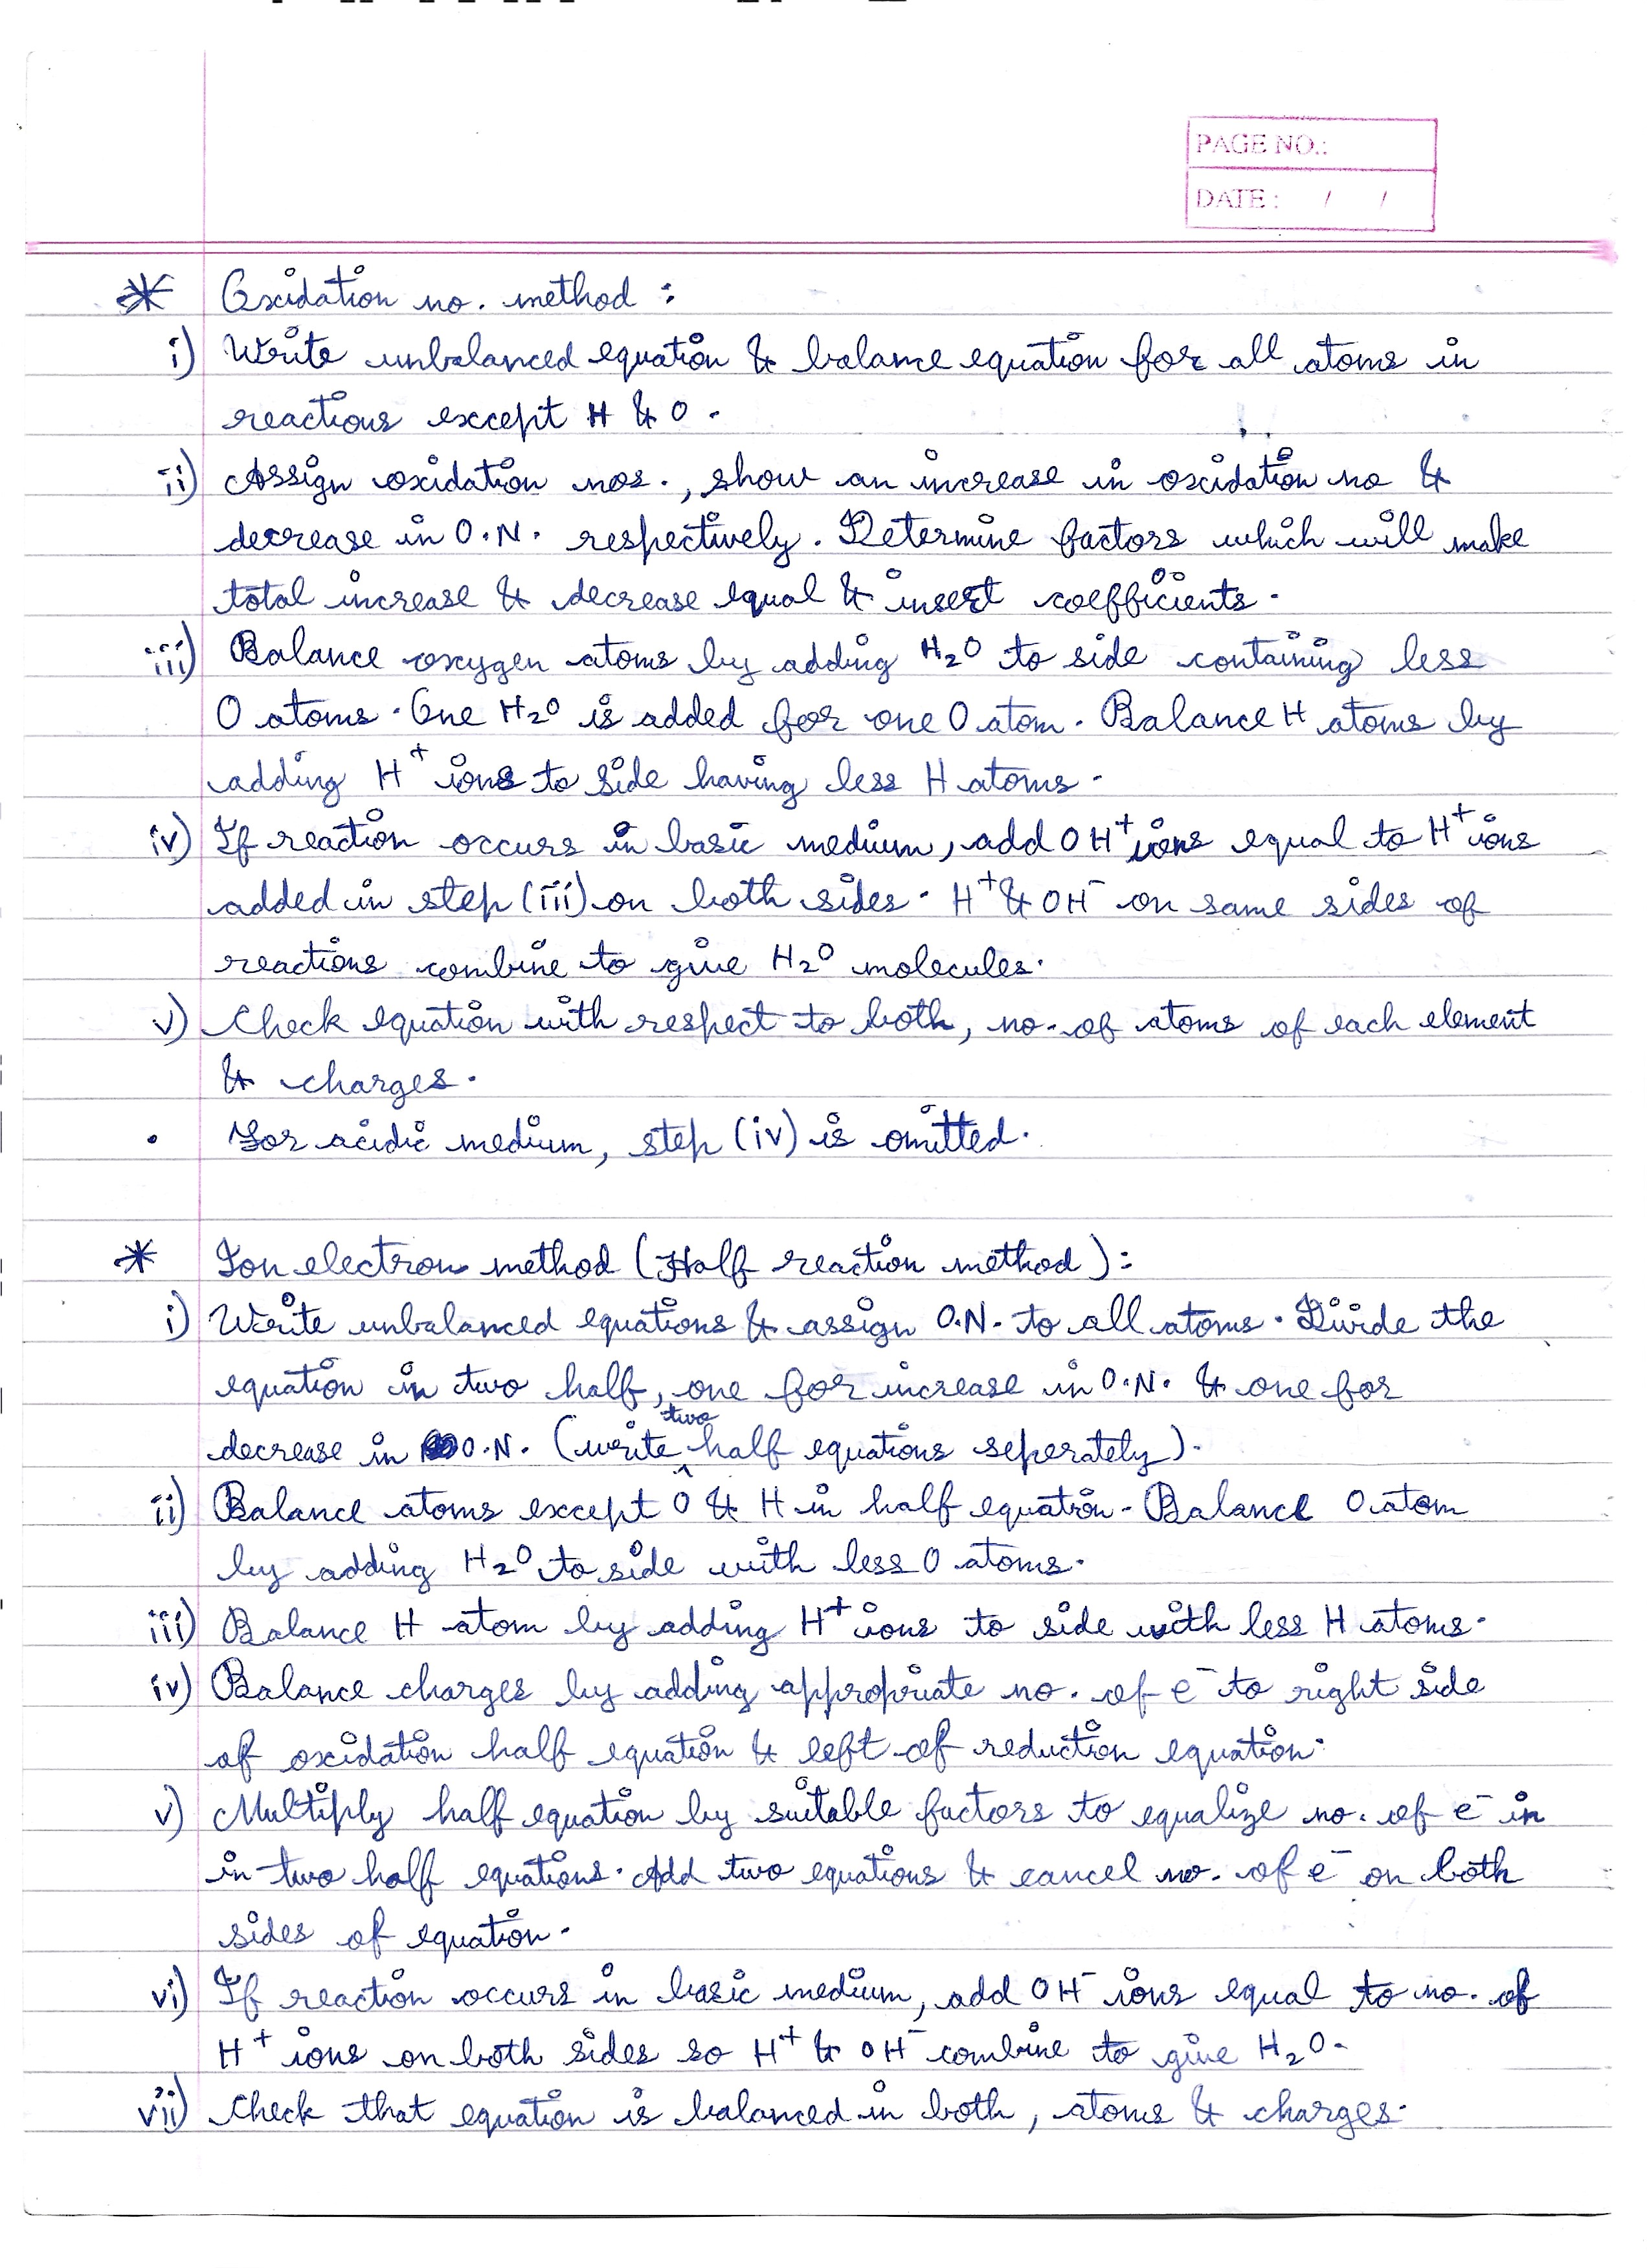 PAGE NO.:
DATE : / /
* Oxidation no. method :
i) Write unbalanced equation & balance equation for all atoms in
reactions except H & O.
ii) Assign oxidation nos., show an increase in oxidation no &
decrease in O.N. respectively. Determine factors which will make
total increase & decrease equal & insert coefficients.
iii) Balance oxygen atoms by adding H₂O to side containing less
O atoms. One H₂O is added for one O atom. Balance H atoms by
adding H⁺ ions to side having less H atoms.
iv) If reaction occurs in basic medium, add OH⁺ ions equal to H⁺ ions
added in step (iii) on both sides. H⁺ & OH⁻ on same sides of
reactions combine to give H₂O molecules.
v) Check equation with respect to both, no. of atoms of each element
& charges.
• For acidic medium, step (iv) is omitted.
* Ion electron method (Half reaction method):
i) Write unbalanced equations & assign O.N. to all atoms. Divide the
equation in two half, one for increase in O.N. & one for
decrease in O.N. (write two half equations seperately).
ii) Balance atoms except O & H in half equation. Balance O atom
by adding H₂O to side with less O atoms.
iii) Balance H atom by adding H⁺ ions to side with less H atoms.
iv) Balance charges by adding appropriate no. of e⁻ to right side
of oxidation half equation & left of reduction equation.
v) Multiply half equation by suitable factors to equalize no. of e⁻ in
in two half equations. Add two equations & cancel no. of e⁻ on both
sides of equation.
vi) If reaction occurs in basic medium, add OH⁻ ions equal to no. of
H⁺ ions on both sides so H⁺ & OH⁻ combine to give H₂O.
vii) Check that equation is balanced in both, atoms & charges.